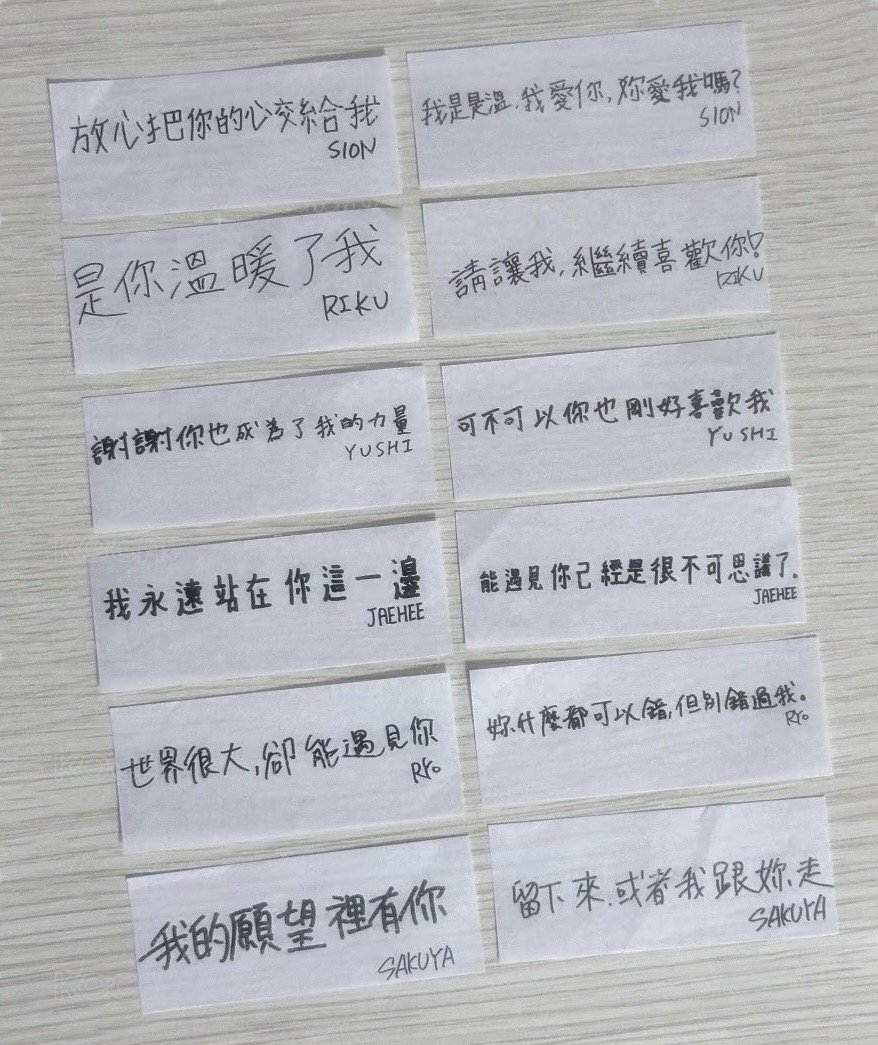 放心把你的心交給我
SION
我是是溫,我愛你,妳愛我嗎?
SION
是你溫暖了我
RIKU
請讓我,繼續喜歡你!
RIKU
謝謝你也成為了我的力量
YUSHI
可不可以你也剛好喜歡我
YUSHI
我永遠站在你這一邊
JAEHEE
能遇見你已經是很不可思議了.
JAEHEE
世界很大,卻能遇見你
RYO
妳什麼都可以錯,但別錯過我。
RYO
我的願望裡有你
SAKUYA
留下來.或者我跟妳走
SAKUYA